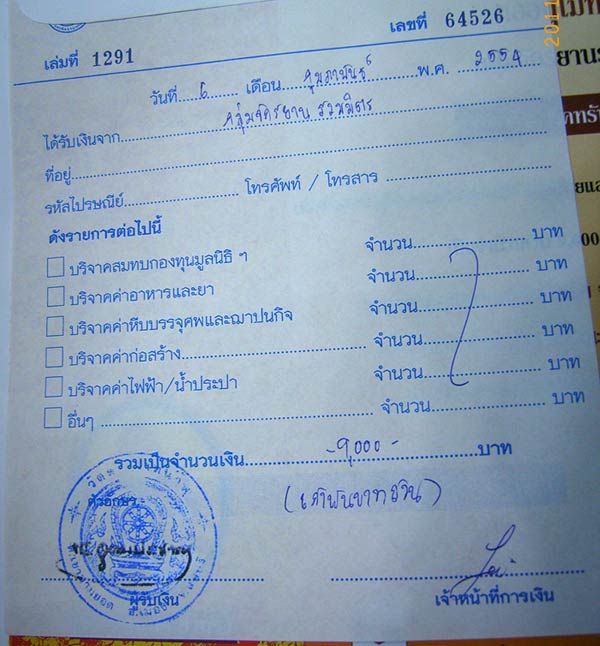 เล่มที่ 1291
เลขที่ 64526
วันที่ 6 เดือน กุมภาพันธ์ พ.ศ. 2554
ได้รับเงินจาก กลุ่มจักรยาน รวมมิตร
ที่อยู่
รหัสไปรษณีย์ โทรศัพท์ / โทรสาร
ดังรายการต่อไปนี้
บริจาคสมทบกองทุนมูลนิธิ ฯ จำนวน บาท
บริจาคค่าอาหารและยา จำนวน บาท
บริจาคค่าหีบบรรจุศพและฌาปนกิจ จำนวน บาท
บริจาคค่าก่อสร้าง จำนวน บาท
บริจาคค่าไฟฟ้า/น้ำประปา จำนวน บาท
อื่นๆ จำนวน บาท
รวมเป็นจำนวนเงิน -9,000- บาท
ตัวอักษร (เก้าพันบาทถ้วน)
ผู้รับเงิน
เจ้าหน้าที่การเงิน
2011